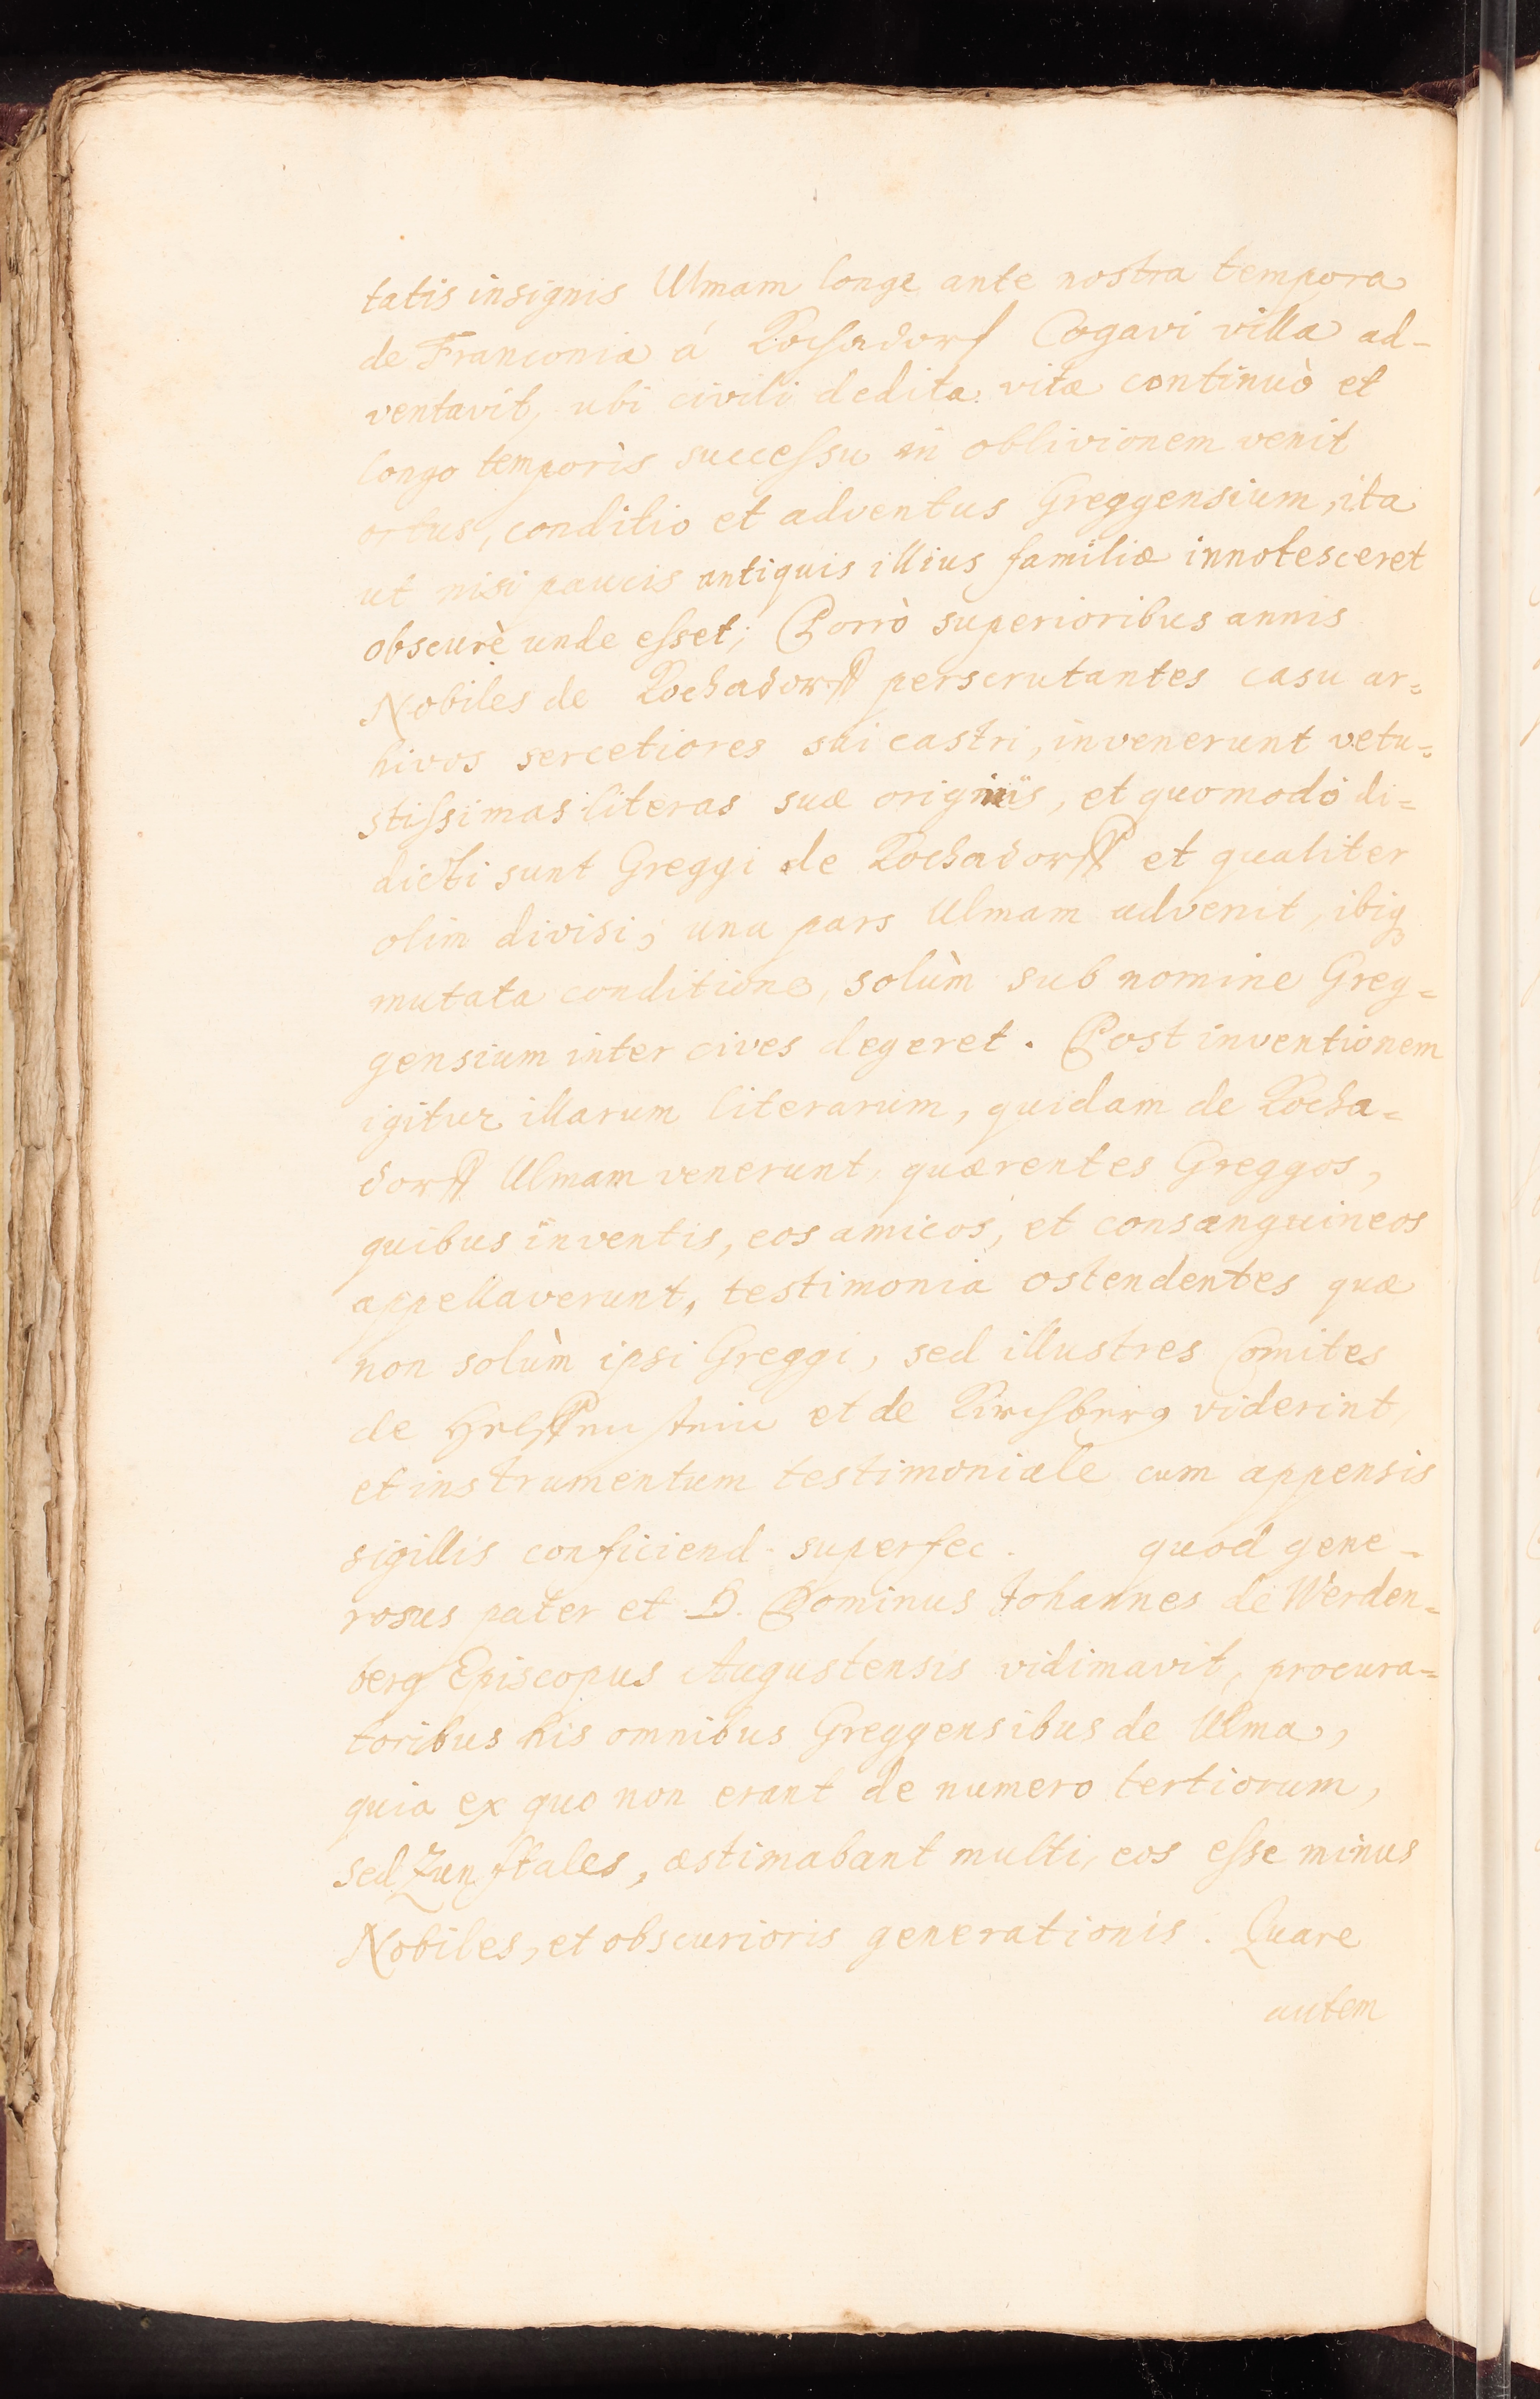 tatis insignis Ulmam longe ante nostra tempora
de Franconia á Kochadorf Cogavi villa ad-
ventavit, ubi civili dedita vitæ continuò et
longo temporis successu in oblivionem venit
ortus, conditio et adventus Greggensium, ita
ut nisi paucis antiquis illius familiæ innotesceret
obscurè unde esset; Porrò superioribus annis
Nobiles de Kochadorff perscrutantes casu ar=
hivos sercetiores sui castri, invenerunt vetu=
stissimas literas suæ originis, et quomodo di=
dicti sunt Greggi de Kochadorff et qualiter
olim divisi, una pars Ulmam advenit, ibiq
mutata conditione, solùm sub nomine Greg=
gensium inter cives degeret. Post inventionem
igitur illarum literarum, quidam de Kocha=
dorff Ulmam venerunt, quærentes Greggos,
quibus inventis, eos amicos, et consanguineos
appellaverunt, testimonia ostendentes quæ
non solùm ipsi Greggi, sed illustres Comites
de Helffenstein et de Kirchberg viderint,
et instrumentum testimoniale cum appensis
sigillis conficiend. superfec. quod gene-
rosus pater et D. Dominus Johannes de Werden=
berg Episcopus Augustensis vidimavit, procura=
toribus his omnibus Greggensibus de Ulma,
quia ex quo non erant de numero tertiorum,
sed Zunftales, æstimabant multi, eos esse minus
Nobiles, et obscurioris generationis. Quare
autem